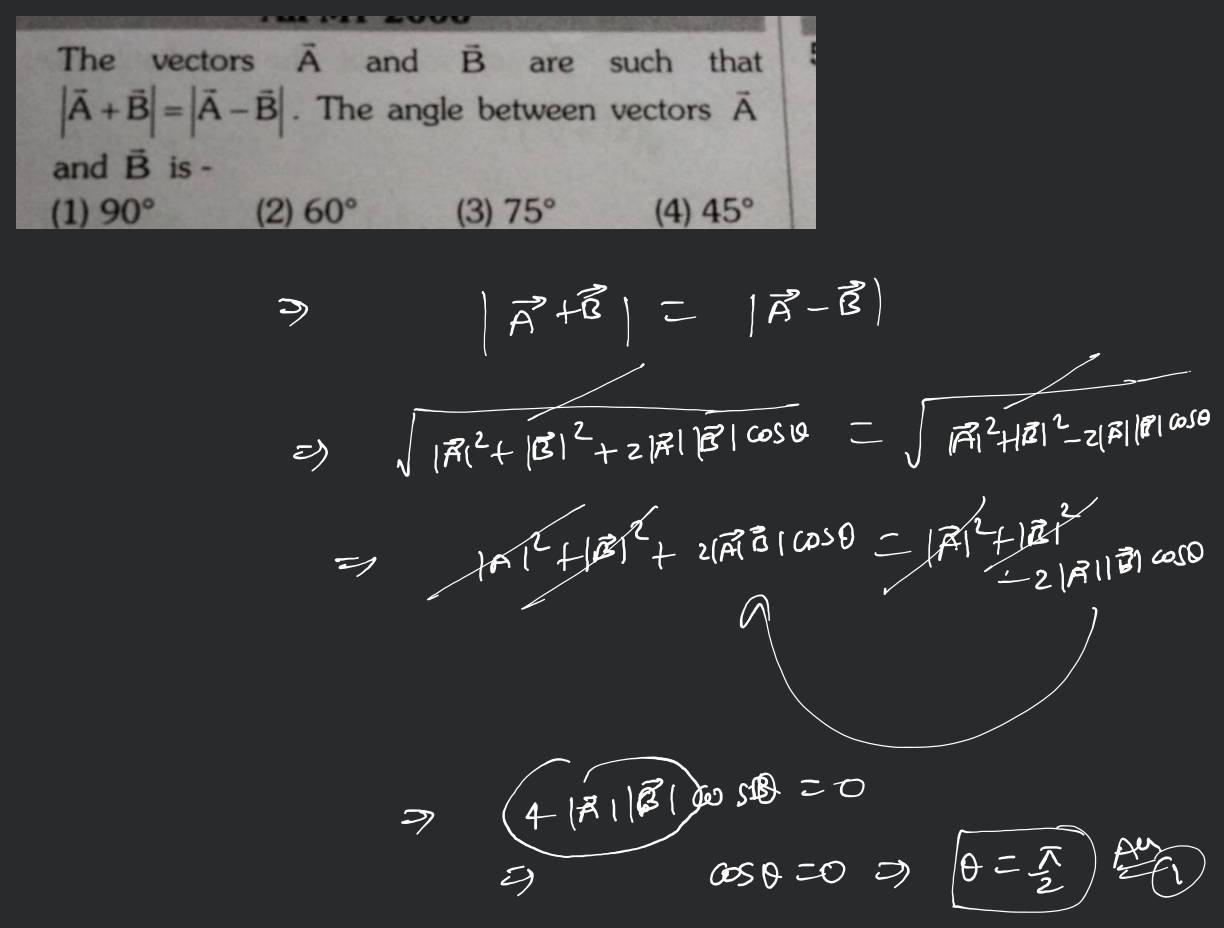 The vectors A⃗ and B⃗ are such that
|A⃗ + B⃗| = |A⃗ – B⃗|. The angle between vectors A⃗
and B⃗ is -
(1) 90° (2) 60° (3) 75° (4) 45°
⇒ |A⃗ + B⃗| = |A⃗ – B⃗|
⇒ √(|A⃗|² + |B⃗|² + 2|A⃗||B⃗| cosθ) = √(|A⃗|² + |B⃗|² – 2|A⃗||B⃗| cosθ)
⇒ |A|² + |B⃗|² + 2|A⃗||B⃗| cosθ = |A⃗|² + |B⃗|²
– 2|A⃗||B⃗| cosθ
⇒ 4|A⃗||B⃗| cosθ = 0
⇒ cosθ = 0 ⇒ θ = π/2 Ans 1